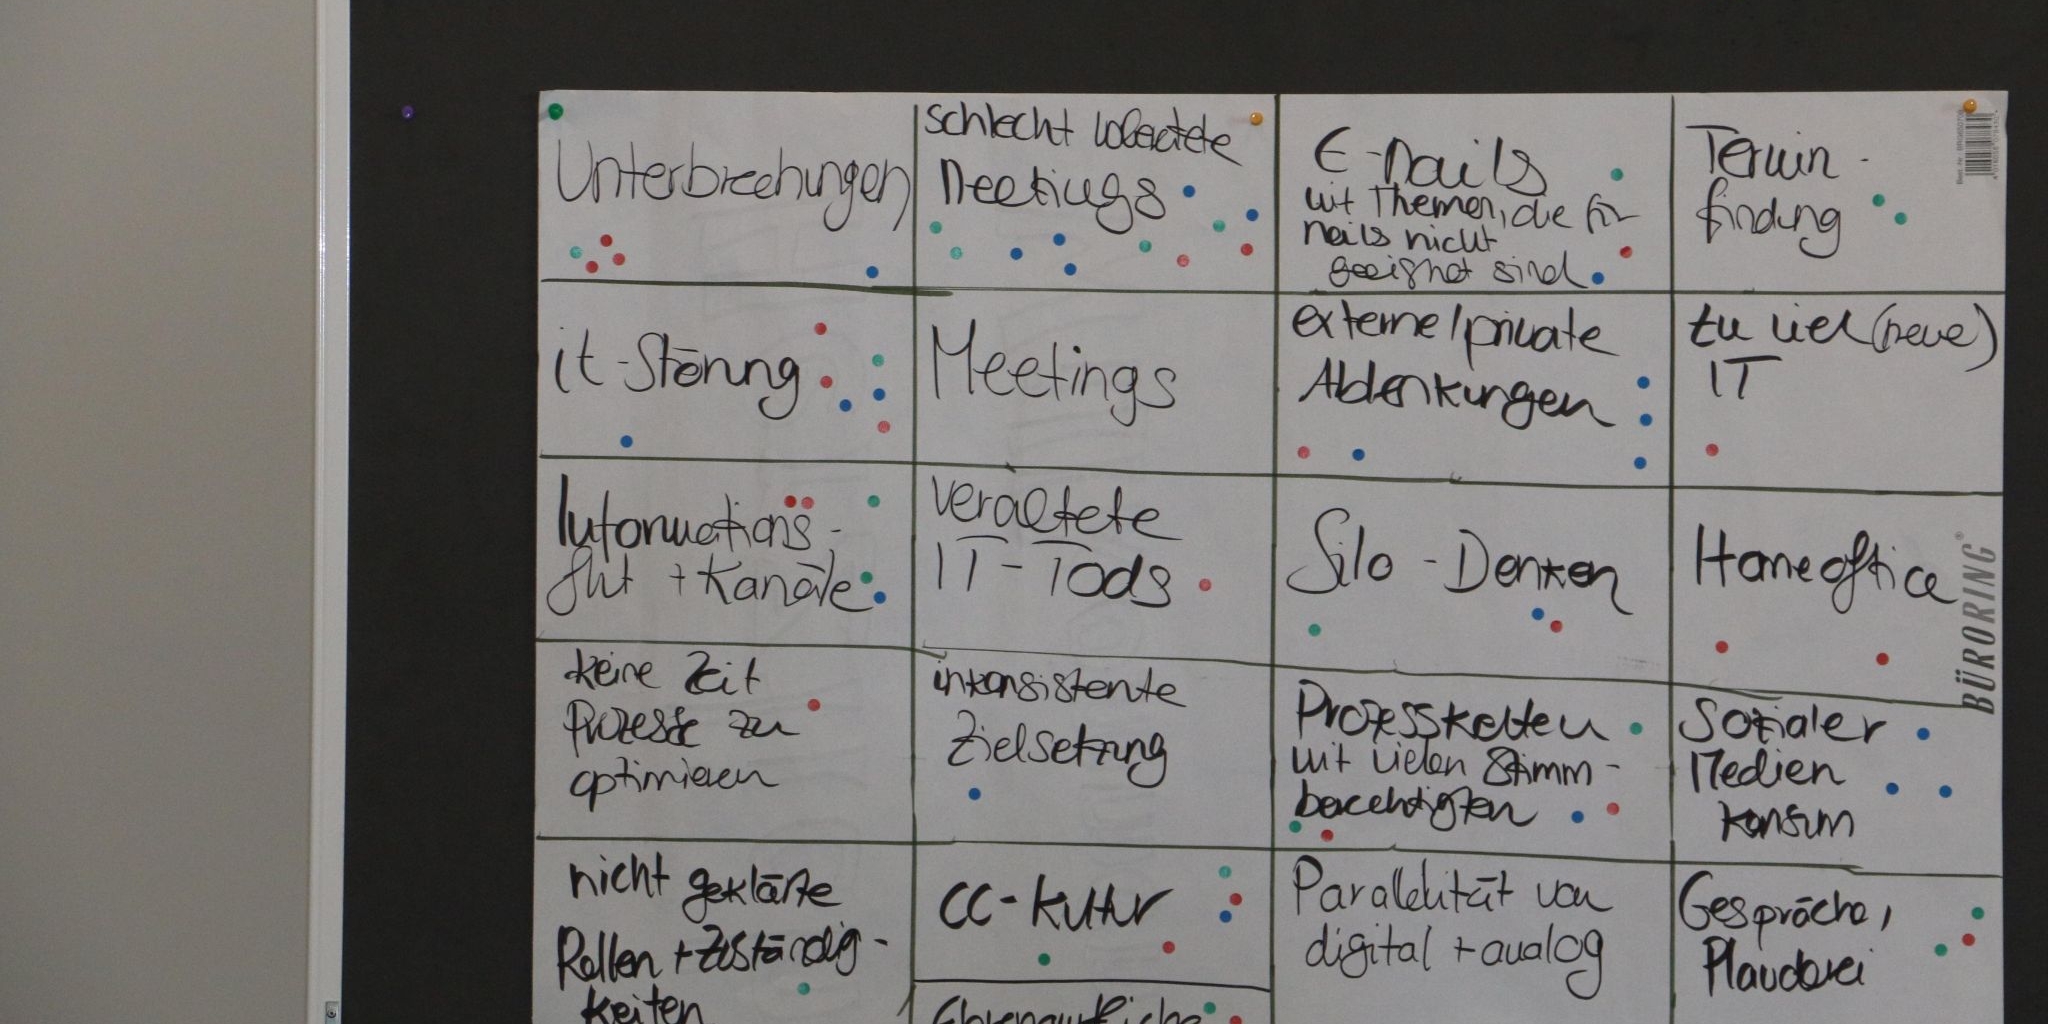 Unterbrechungen
schlecht
Meetings
E-Mails
mit Themen, die für
Mails nicht
geeignet sind
Termin-
findung
it-Störung
Meetings
externe/private
Ablenkungen
zu viel (neue)
IT
Informations-
flut + Kanäle
veraltete
IT-Tools
Silo-Denken
Homeoffice
BÜRORING®
keine Zeit
Prozesse zu
optimieren
inkonsistente
Zielsetzung
Prozessketten
mit vielen Stimm-
berechtigten
Sozialer
Medien
konsum
nicht geklärte
Rollen + Zuständig-
keiten
CC-Kultur
Parallelität von
digital + analog
Gespräche,
Plauderei